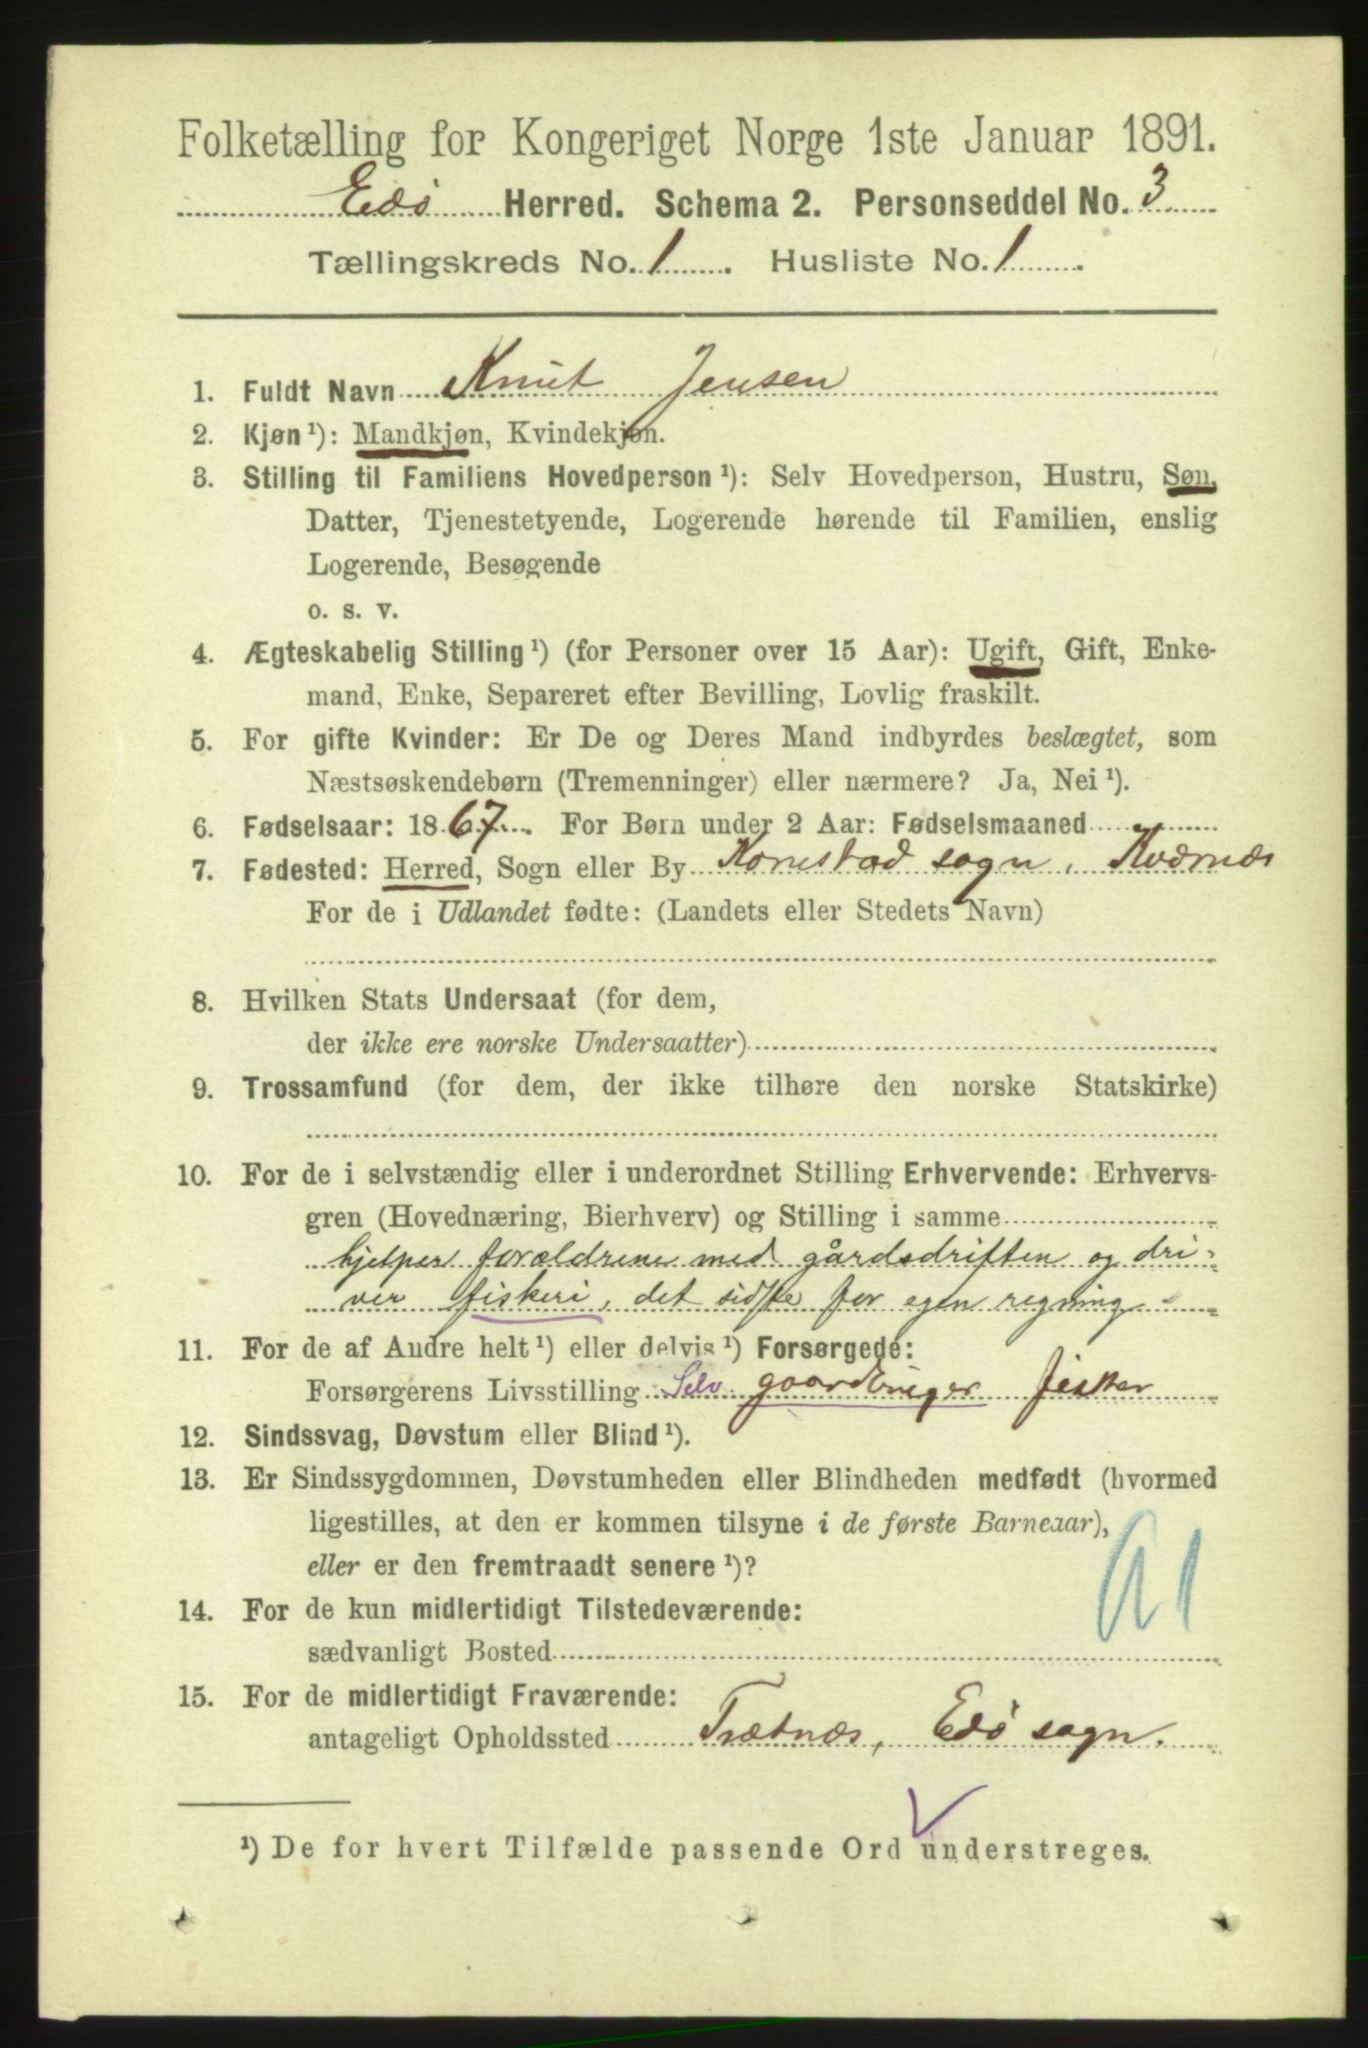 Folketælling for Kongeriget Norge 1ste Januar 1891.
Edö Herred. Schema 2. Personseddel No. 3
Tællingskreds No. 1. Husliste No. 1.
1. Fuldt Navn Knut Jensen
2. Kjøn ¹): Mandkjøn, Kvindekjøn.
3. Stilling til Familiens Hovedperson ¹): Selv Hovedperson, Hustru, Søn,
Datter, Tjenestetyende, Logerende hørende til Familien, enslig
Logerende, Besøgende
o. s. v.
4. Ægteskabelig Stilling ¹) (for Personer over 15 Aar): Ugift, Gift, Enke-
mand, Enke, Separeret efter Bevilling, Lovlig fraskilt.
5. For gifte Kvinder: Er De og Deres Mand indbyrdes beslægtet, som
Næstsøskendebørn (Tremenninger) eller nærmere? Ja, Nei ¹).
6. Fødselsaar: 1867. For Børn under 2 Aar: Fødselsmaaned
7. Fødested: Herred, Sogn eller By Kornstad sogn, Kværnæs
For de i Udlandet fødte: (Landets eller Stedets Navn)
8. Hvilken Stats Undersaat (for dem,
der ikke ere norske Undersaatter)
9. Trossamfund (for dem, der ikke tilhøre den norske Statskirke)
10. For de i selvstændig eller i underordnet Stilling Erhvervende: Erhvervs-
gren (Hovednæring, Bierhverv) og Stilling i samme
hjelper forældrene med gårdsdriften og dri-
ver fiskeri, det sidste for egen regning.
11. For de af Andre helt ¹) eller delvis ¹) Forsørgede:
Forsørgerens Livsstilling Selv gaardbruger fisker
12. Sindssvag, Døvstum eller Blind ¹).
13. Er Sindssygdommen, Døvstumheden eller Blindheden medfødt (hvormed
ligestilles, at den er kommen tilsyne i de første Barneaar),
eller er den fremtraadt senere ¹)?
14. For de kun midlertidigt Tilstedeværende:
sædvanligt Bosted
15. For de midlertidigt Fraværende:
antageligt Opholdssted Trætnæs, Edö sogn.
¹) De for hvert Tilfælde passende Ord understreges.